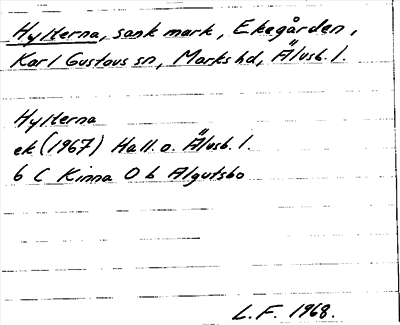 Hylterna, sank mark, Ekegården,
Karl Gustavs sn, Marks hd, Älvsb. l.
Hylterna
ek (1967) Hall. o. Älvsb. l.
6 C Kinna 0 b Algutsbo
L. F. 1968.